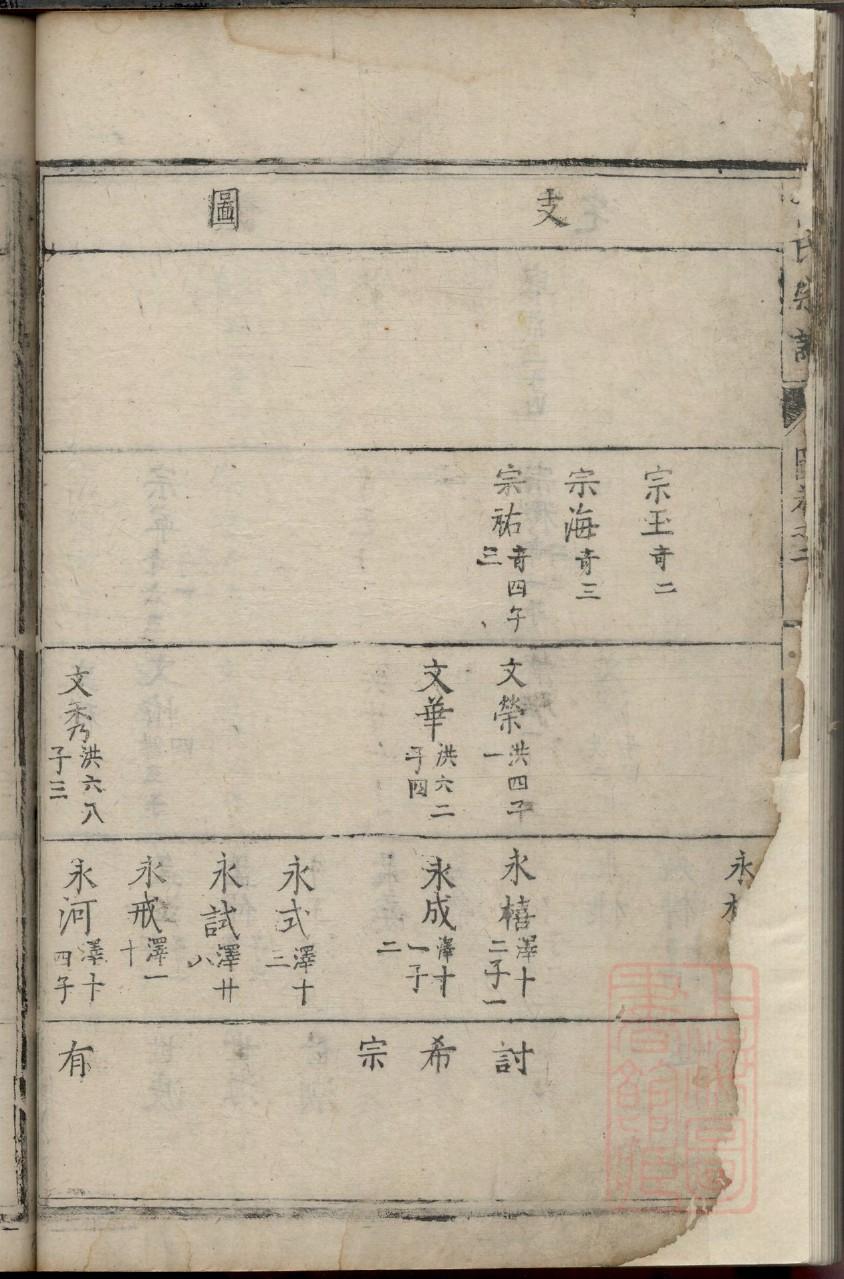 氏宗譜
圖卷之二
支
圖
宗玉 奇二
宗海 奇三
宗祐 奇四 子三
文榮 洪四 子一
文華 洪六二 子四
文秀 洪六八 子三
永
永橲 澤十二 子一
永成 澤十一 子二
永式 澤十三
永試 澤廿八
永戒 澤一十
永河 澤十四 子
討
希
宗
有
上海圖書館藏